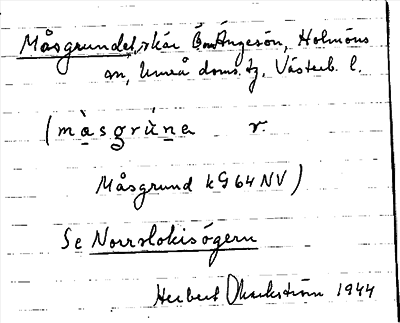 Måsgrundet, skär Ö om Ängesön, Holmöns
sn, Umeå doms. tg, Västerb. l.
(màsgrùna r.
Måsgrund kG64NV)
Se Norrslokisögern
Herbert 1944